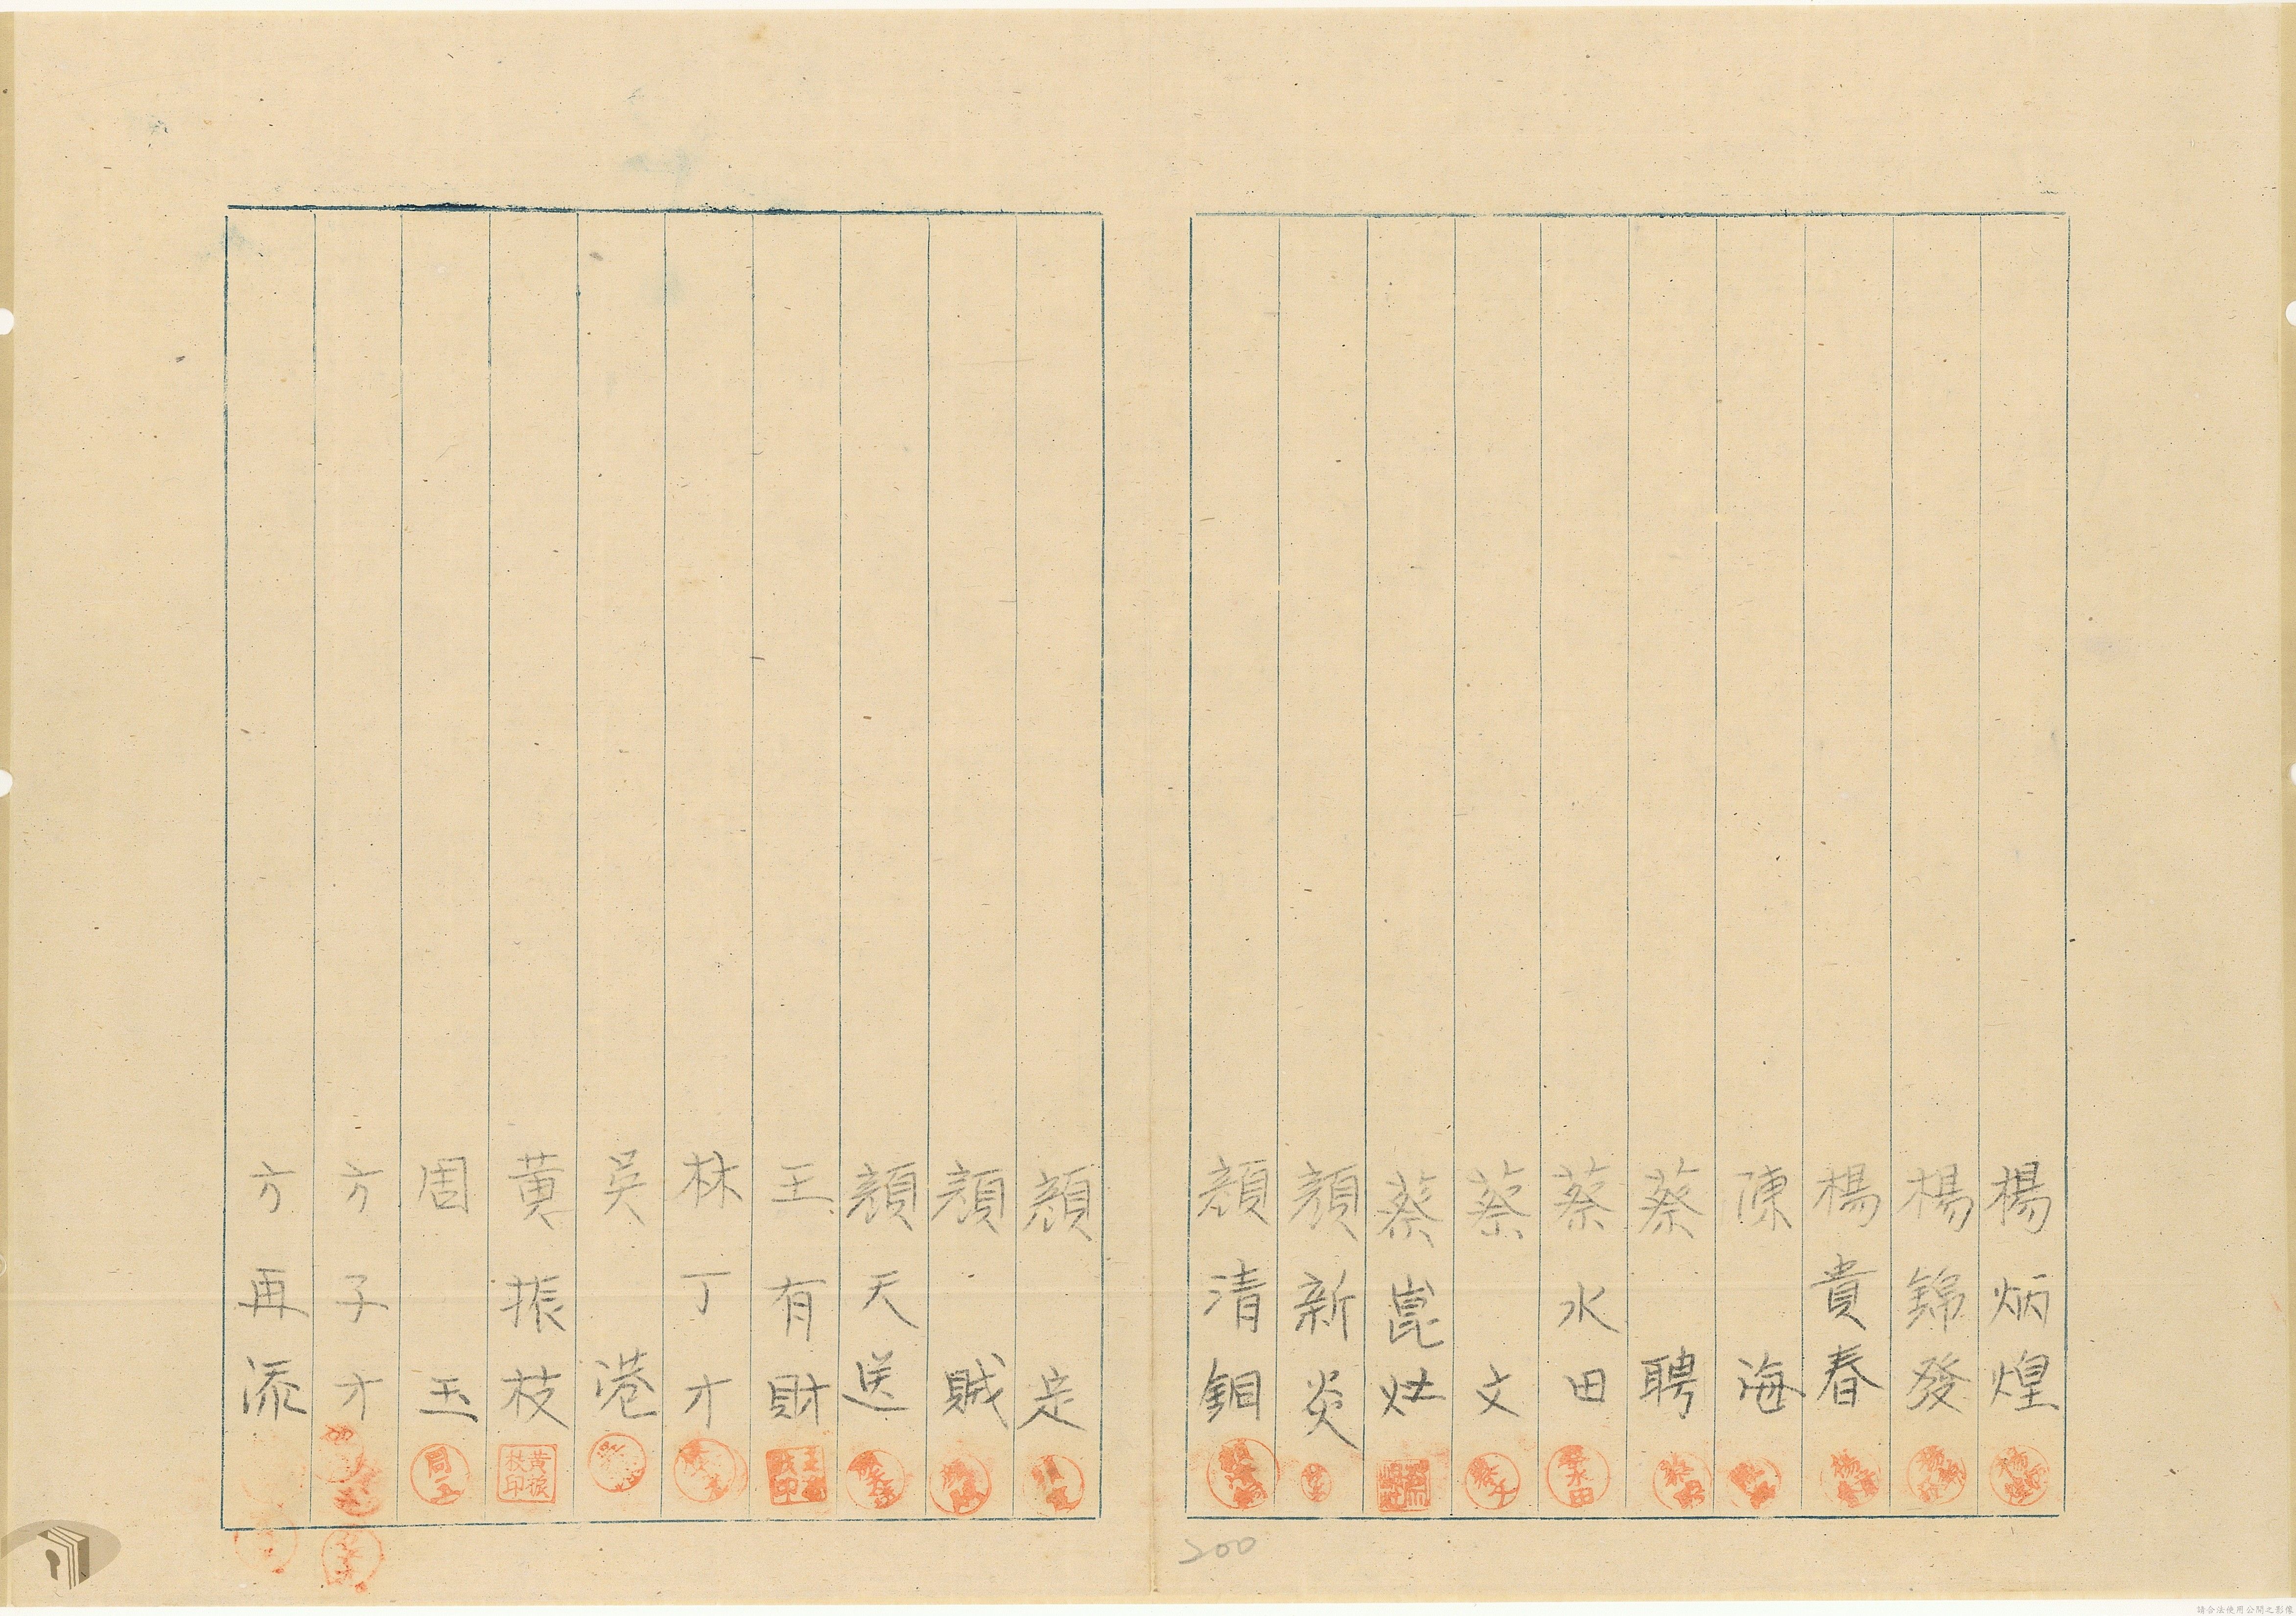 楊炳煌
楊錦發
楊貴春
陳海
蔡聘
蔡水田
蔡文
蔡崑灶
顏新炎
顏清銅
顏定
顏賊
顏天送
王有財
林丁才
吳港
黄振枝
黄振枝印
周玉
周玉
方子才
方再添
200
請合法使用公開之影像